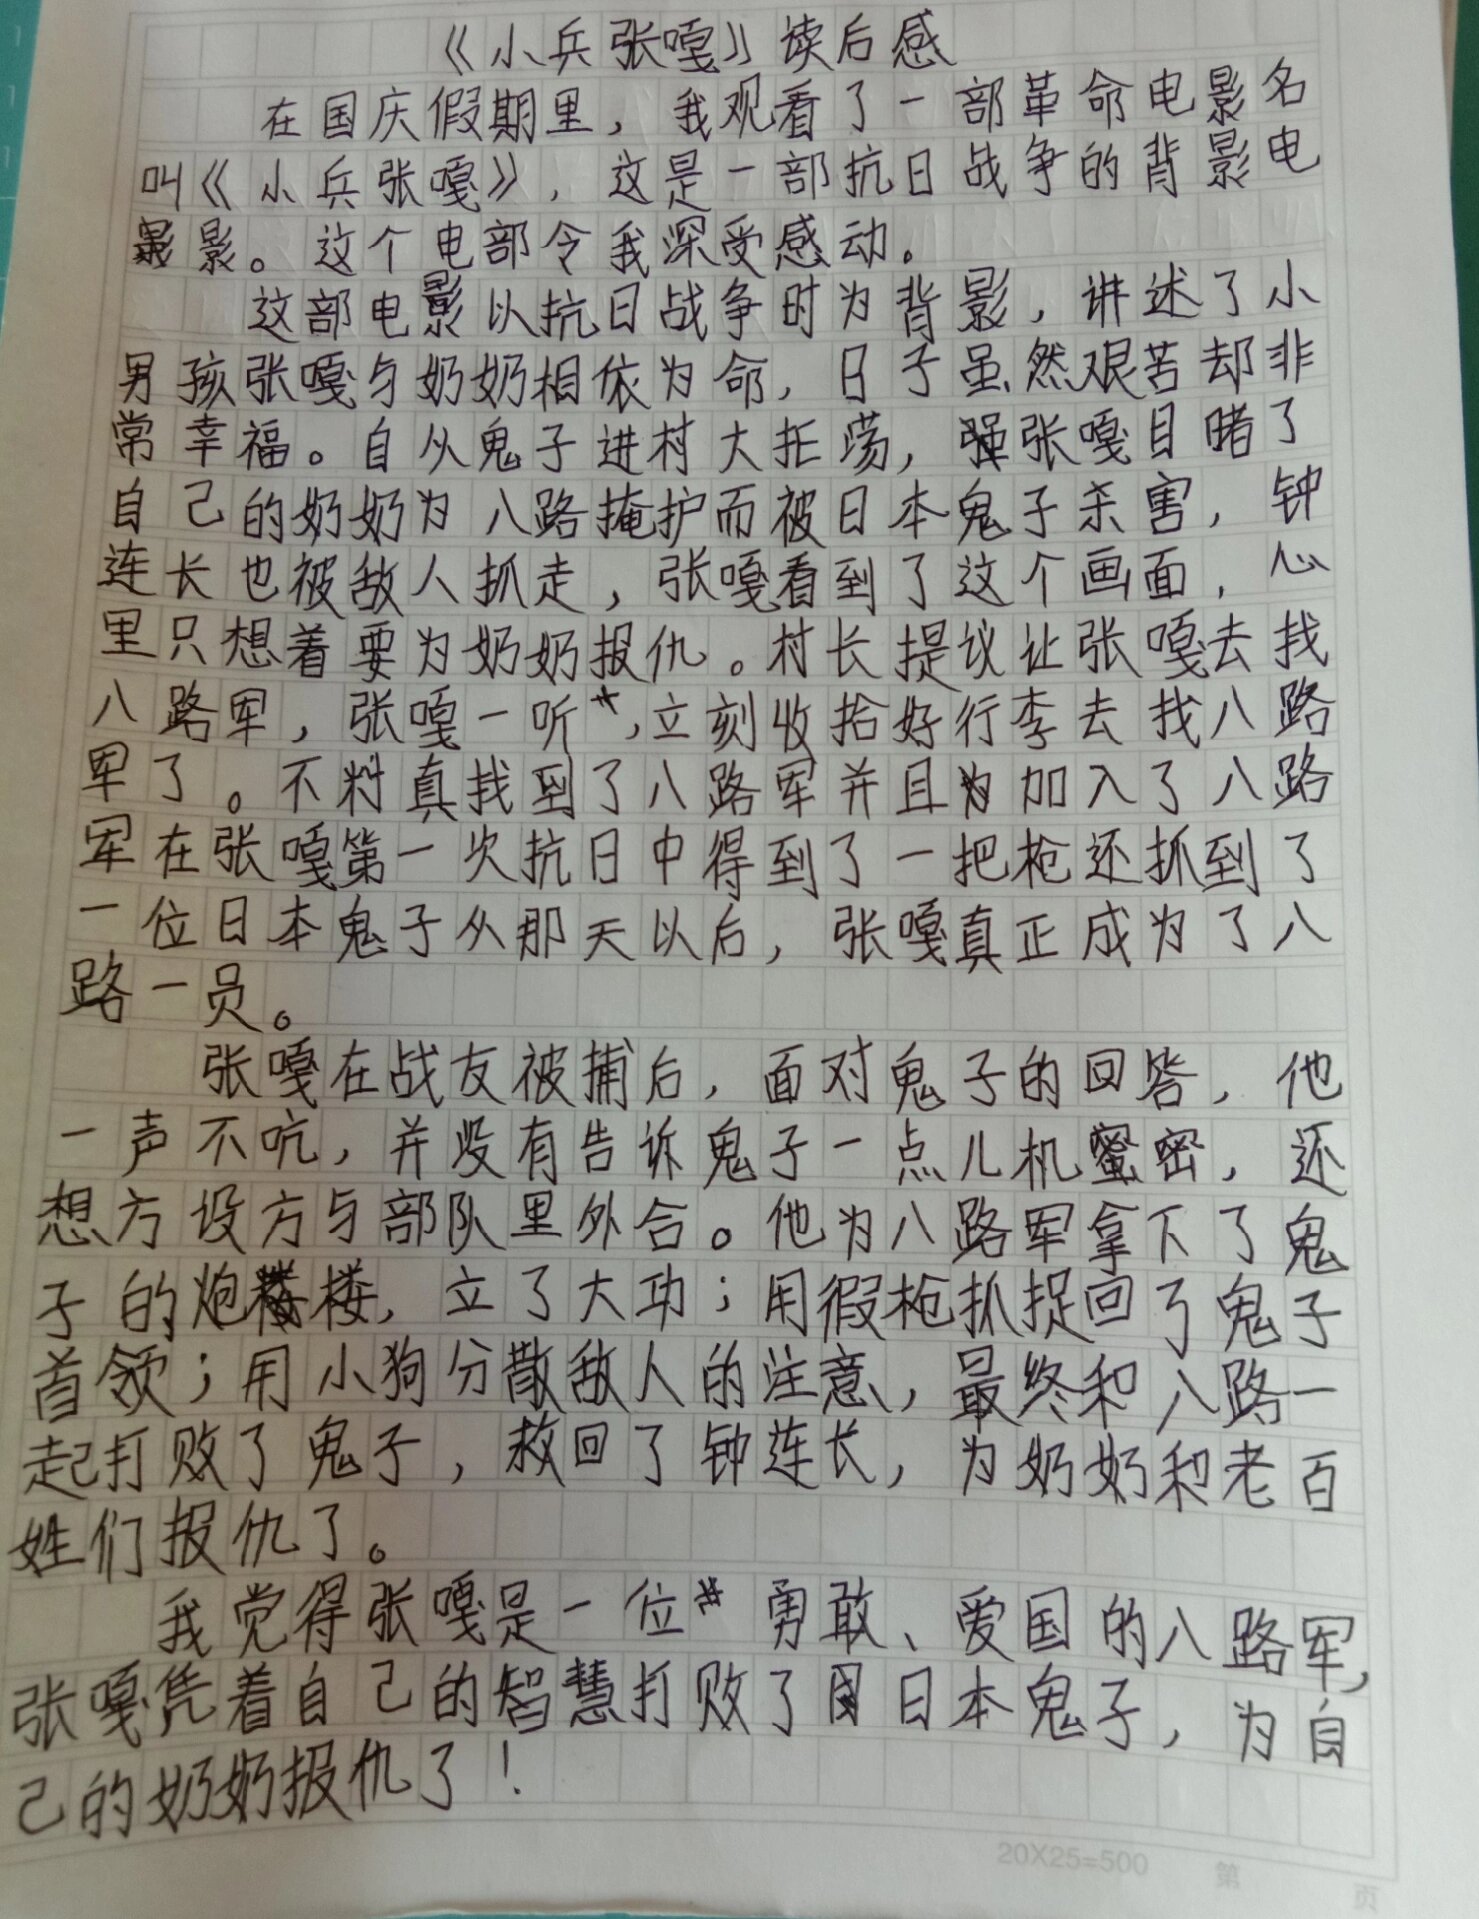 《小兵张嘎》读后感
在国庆假期里，我观看了一部革命电影名
叫《小兵张嘎》，这是一部抗日战争的背影电
影。这个电部令我深受感动。
这部电影以抗日战争时为背影，讲述了小
男孩张嘎与奶奶相依为命，日子虽然艰苦却非
常幸福。自从鬼子进村大扫荡，张嘎目睹了
自己的奶奶为八路掩护而被日本鬼子杀害，钟
连长也被敌人抓走，张嘎看到了这个画面，心
里只想着要为奶奶报仇。村长提议让张嘎去找
八路军，张嘎一听，立刻收拾好行李去找八路
军了。不料真找到了八路军并且加入了八路
军在张嘎第一次抗日中得到了一把枪还抓到了
一位日本鬼子从那天以后，张嘎真正成为了八
路一员。
张嘎在战友被捕后，面对鬼子的回答，他
一声不吭，并没有告诉鬼子一点儿机密，还
想方设方与部队里外合。他为八路军拿下了鬼
子的炮楼，立了大功；用假枪抓捉回了鬼子
首领；用小狗分散敌人的注意，最终和八路一
起打败了鬼子，救回了钟连长，为奶奶和老百
姓们报仇了。
我觉得张嘎是一位勇敢、爱国的八路军，
张嘎凭着自己的智慧打败了日本鬼子，为自
己的奶奶报仇了！
20X25=500 第 页